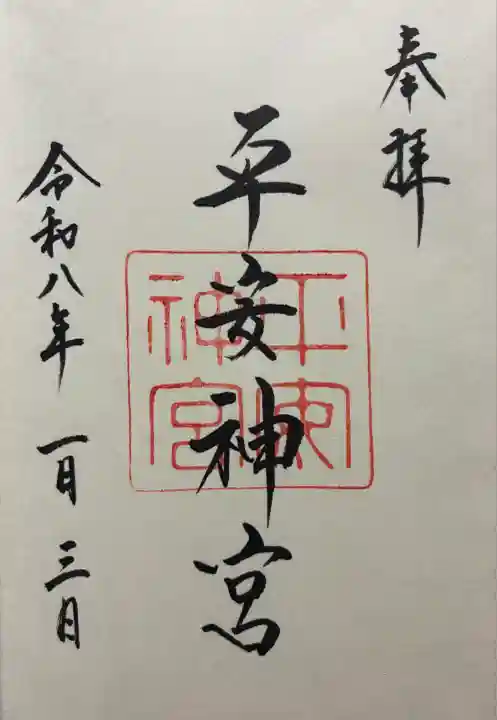 奉拝
平安神宮
平安神宮
令和八年 一月 三日